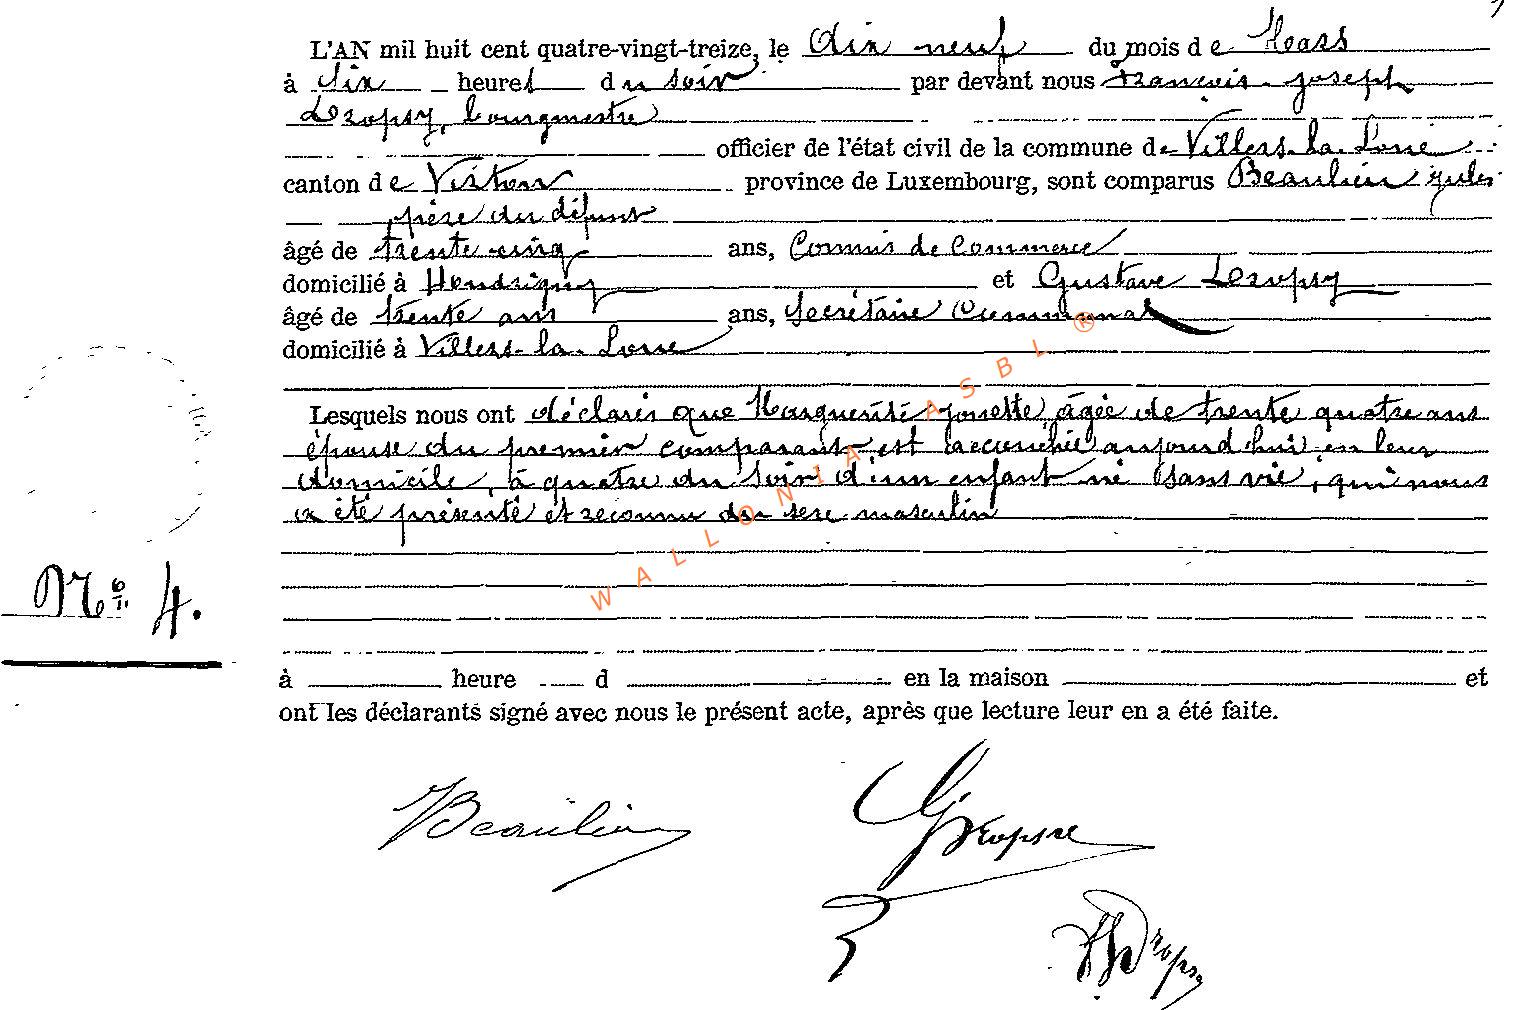 L'AN mil huit cent quatre-vingt-treize, le dix neuf du mois de Mars
à six heures du soir par devant nous François Joseph
Dropsy, bourgmestre
officier de l'état civil de la commune de Villers-la-Loue
canton de Virton province de Luxembourg, sont comparus Beaulieu Jules
père du défunt
âgé de trente cinq ans, Commis de Commerce
domicilié à Houdrigny et Gustave Dropsy
âgé de trente ans ans, Secrétaire Communal
domicilié à Villers-la-Loue
Lesquels nous ont déclaré que Marguerite Jonette, âgée de trente quatre ans
épouse du premier comparant, est accouchée aujourd'hui en leur
domicile, à quatre du soir d'un enfant né sans vie, qui nous
a été présenté et reconnu du sexe masculin
N° 4.
à heure d en la maison et
ont les déclarants signé avec nous le présent acte, après que lecture leur en a été faite.
Beaulieu
G Dropsy
Dropsy
WALLONIA ASBL ®